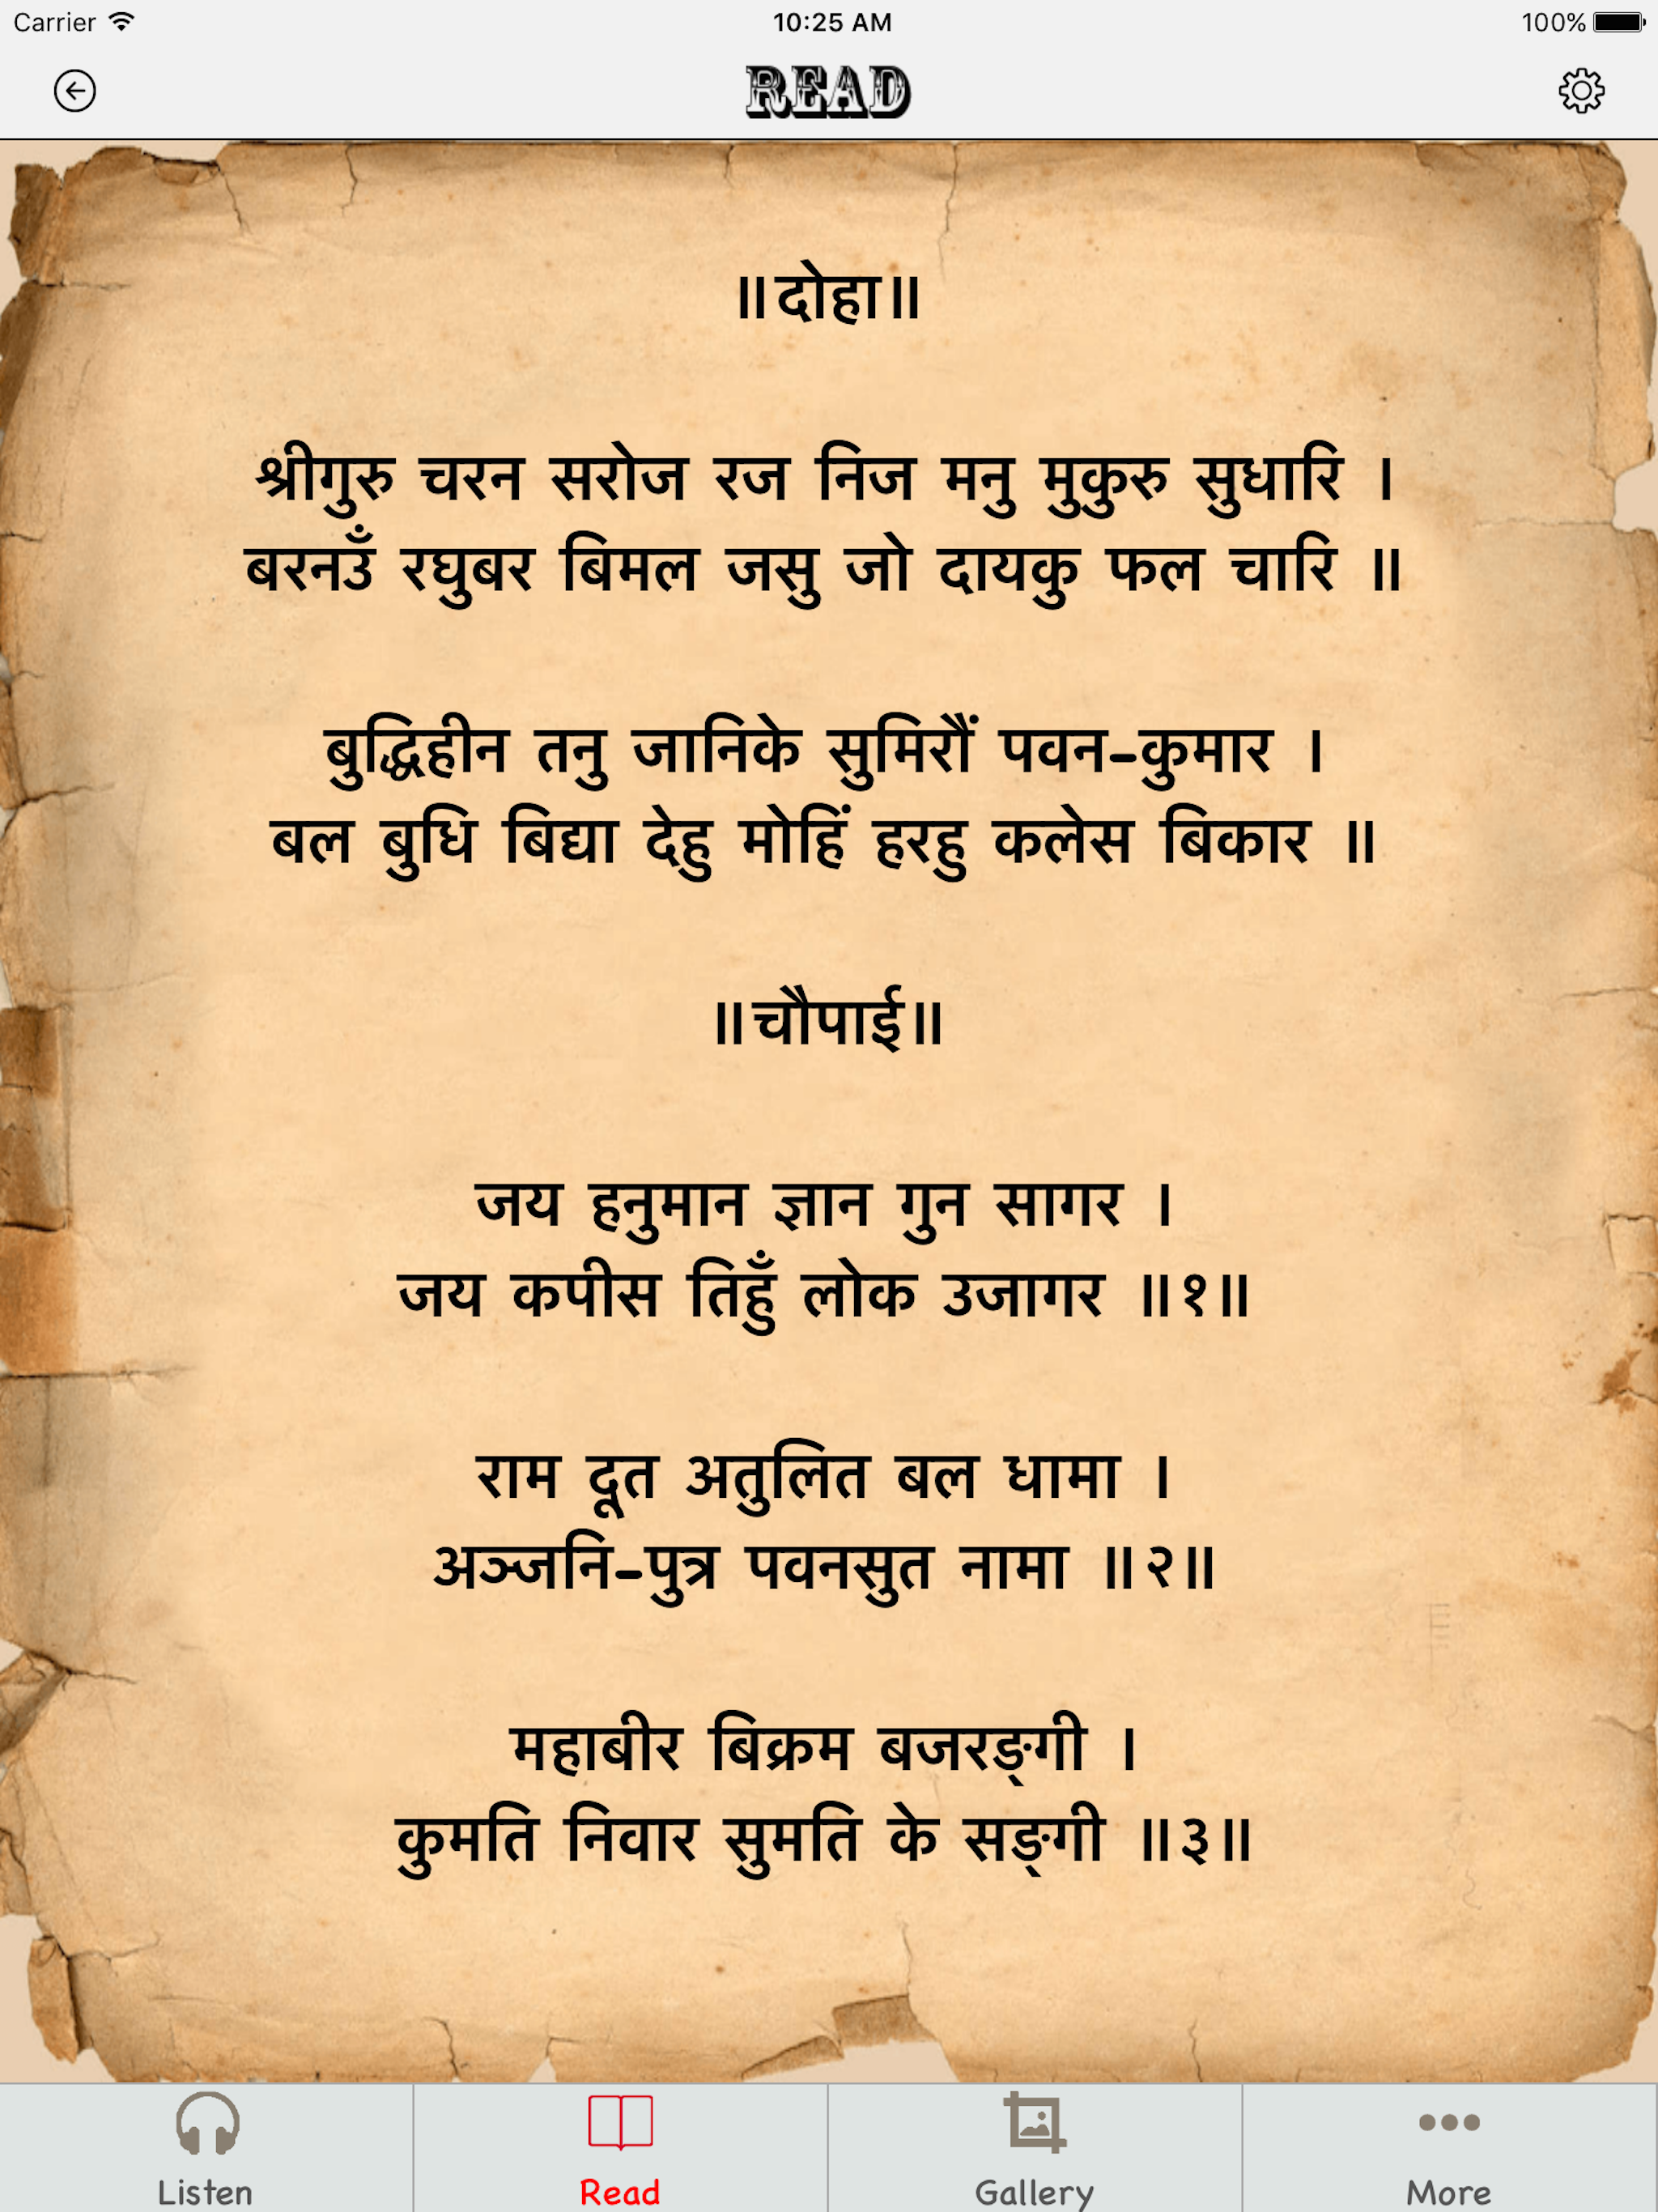 Carrier 10:25 AM 100%
READ
॥दोहा॥
श्रीगुरु चरन सरोज रज निज मनु मुकुरु सुधारि ।
बरनउँ रघुबर बिमल जसु जो दायकु फल चारि ॥
बुद्धिहीन तनु जानिके सुमिरौं पवन-कुमार ।
बल बुधि बिद्या देहु मोहिं हरहु कलेस बिकार ॥
॥चौपाई॥
जय हनुमान ज्ञान गुन सागर ।
जय कपीस तिहुँ लोक उजागर ॥१॥
राम दूत अतुलित बल धामा ।
अञ्जनि-पुत्र पवनसुत नामा ॥२॥
महाबीर बिक्रम बजरङ्गी ।
कुमति निवार सुमति के सङ्गी ॥३॥
Listen Read Gallery More